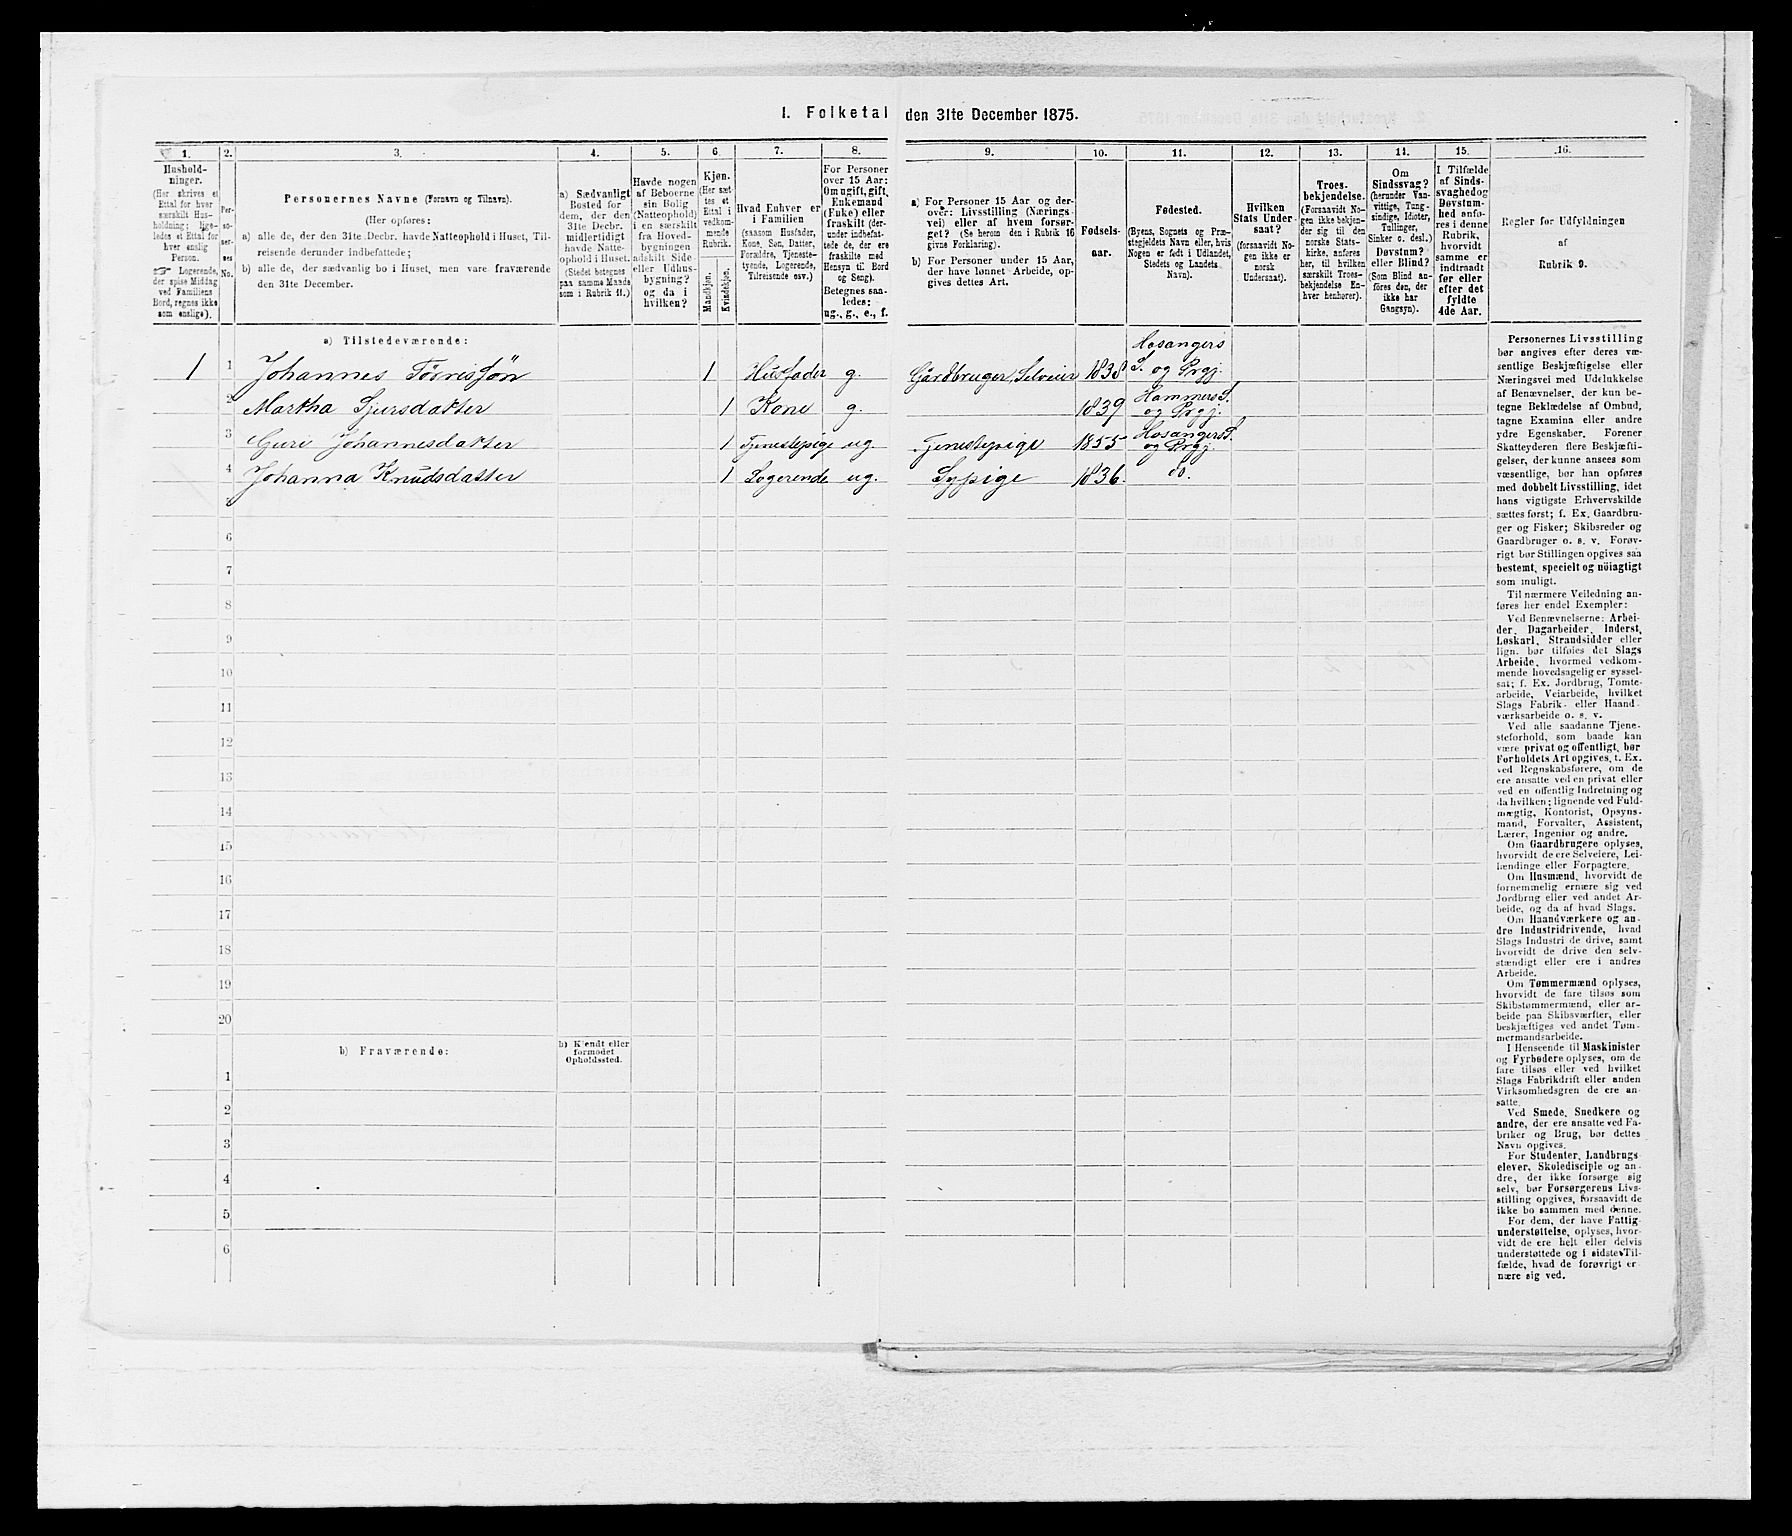 I. Folketal den 31te December 1875.
1. 2. 3. 4. 5. 6. 7. 8. 9. 10. 11. 12. 13. 14. 15. 16.
Hushold-
ninger.
(Her skrives et
Ettal for hver
særskilt Hus-
holdning; lige-
ledes et Ettal for
hver enslig
Person.
☞ Logerende,
der spise Middag
ved Familiens
Bord, regnes ikke
som enslige).
Per-
so-
ner-
nes
No.
Personernes Navne (Fornavn og Tilnavn).
(Her opføres:
a) alle de, der den 31te Decbr. havde Natteophold i Huset, Til-
reisende derunder indbefattede;
b) alle de, der sædvanlig bo i Huset, men vare fraværende
den 31te December.
a) Sædvanligt
Bosted for
dem, der den
31te Decbr.
midlertidigt
havde Natte-
ophold i Huset.
(Stedet betegnes
paa samme Maade
som i Rubrik 11.)
Havde nogen
af Beboerne
sin Bolig
(Natteophold)
i en særskilt
fra Hoved-
bygningen
adskilt Side-
eller Udhus-
bygning?
og da i
hvilken?
Kjøn.
(Her sæt-
tes et
Ettal i
vedkom-
mende
Rubrik.
Mandkjøn.
Kvindekjøn.
Hvad Enhver er
i Familien
(saasom Husfader,
Kone, Søn, Datter,
Forældre, Tjeneste-
tyende, Logerende,
Tilreisende osv.)
For Personer
over 15 Aar:
Om ugift, gift,
Enkemand
(Enke) eller
fraskilt (der-
under indbefat-
tede de, der ere
fraskilte med
Hensyn til Bord
og Seng).
Betegnes saa-
ledes:
ug., g., e., f.
a) For Personer 15 Aar og der-
over: Livsstilling (Nærings-
vei) eller af hvem forsør-
get? (Se herom den i Rubrik 16
givne Forklaring).
b) For Personer under 15 Aar,
der have lønnet Arbeide, op-
gives dettes Art.
Fødsels-
aar.
Fødested.
(Byens, Sognets og Præ-
stegjeldets Navn eller, hvis
Nogen er født i Udlandet,
Stedets og Landets
Navn).
Hvilken
Stats Under-
saat?
(forsaavidt No-
gen ikke er
norsk
Undersaat).
Troes-
bekjendelse.
(Forsaavidt No-
gen ikke bekjen-
der sig til den
norske Stats-
kirke, anføres
her, til hvilken
særskilt Troes-
bekjendelse En-
hver henhører).
Om
Sindssvag?
(herunder Van-
vittige, Tung-
sindige, Idioter,
Tullinger,
Sinker o. desl.)
Døvstum?
eller Blind?
(Som Blind an-
føres den, der
ikke har
Gangsyn).
I Tilfælde
af Sinds-
svaghed og
Døvstum-
hed anfø-
res i denne
Rubrik,
hvorvidt
samme er
indtraadt
før eller
efter det
fyldte
4de Aar.
Regler for Udfyldningen
af
Rubrik 9.
a) Tilstedeværende:
Hosangers
1 1 Johannes Tørressøn 1 Husfader g. Gårdbruger, Selveier 1838 S. og Prgj.
2 Martha Sjursdatter 1 Kone g. 1839 Hammers S.
og Prgj.
3 Guri Johannesdatter 1 Tjenestepige ug Tjenestepige 1855 Hosangers S.
og Prgj.
4 Johanna Knudsdatter 1 Logerende ug. Sypige 1836. do.
6
7
8
9
10
11
12
13
14
15
16
17
18
19
20
b) Fraværende:
b) Kjendt eller
formodet
Opholdssted.
1
2
3
4
5
6
Personernes Livsstilling
bør angives efter deres væ-
sentlige Beskjæftigelse eller
Næringsvei med Udelukkelse
af Benævnelser, der kun be-
tegne Beklædelse af Ombud,
tagne Examina eller andre
ydre Egenskaber. Forener
Skatteyderen flere Beskjæfti-
gelser, der kunne ansees som
væsentlige, bør han opføres
med dobbelt Livsstilling, idet
hans vigtigste Erhvervskilde
sættes først; f. Ex. Gaardbru-
ger og Fisker; Skibsreder og
Gaardbruger o. s. v. Forøv-
rigt bør Stillingen opgives saa
bestemt, specielt og nøiagtigt
som muligt.
Til nærmere Veiledning an-
føres her endel Exempler:
Ved Benævnelserne: Arbei-
der, Dagarbeider, Inderst,
Løskarl, Strandsidder eller
lign. bør tilføies det Slags
Arbeide, hvormed vedkom-
mende hovedsagelig er syssel-
sat; f. Ex. Jordbrug, Tomte-
arbeide, Veiarbeide, hvilket
Slags Fabrik- eller Haand-
værksarbeide o. s. v.
Ved alle saadanne Tjene-
steforhold, som baade kan
være privat og offentligt, bør
Forholdets Art opgives, t. Ex.
ved Regnskabsførere, om de
ere ansatte ved en privat eller
ved en offentlig Indretning og
da hvilken; lignende ved Fuld-
mægtig, Kontorist, Opsyns-
mand, Forvalter, Assistent,
Lærer, Ingeniør og andre.
Om Gaardbrugere oplyses,
hvorvidt de ere Selveiere, Lei-
lændinge eller Forpagtere.
Om Husmænd, hvorvidt de
fornemmelig ernære sig ved
Jordbrug eller ved andet Ar-
beide, og da af hvad Slags.
Om Haandværkere og an-
dre Industridrivende, hvad
Slags Industri de drive, samt
hvorvidt de drive den selv-
stændigt eller ere i andres
Arbeide.
Om Tømmermænd oplyses,
hvorvidt de fare tilsøs som
Skibstømmermænd, eller ar-
beide paa Skibsværfter, eller
beskjæftiges ved andet Tøm-
mermandsarbeide.
I Henseende til Maskinister
og Fyrbødere oplyses, om de
fare tilsøs eller ved hvilket
Slags Fabrikdrift eller anden
Virksomhedsgren de ere an-
satte.
Ved Smede, Snedkere og
andre, der ere ansatte ved Fa-
briker og Brug, bør dettes
Navn opgives.
For Studenter, Landbrugs-
elever, Skoledisciple og an-
dre, der ikke forsørge sig
selv, bør Forsørgerens Livs-
stilling opgives, forsaavidt de
ikke bo sammen med denne.
For dem, der have Fattig-
understøttelse, oplyses, hvor-
vidt de ere helt eller delvis
understøttede og i sidste Til-
fælde, hvad de forøvrigt er-
nære sig ved.